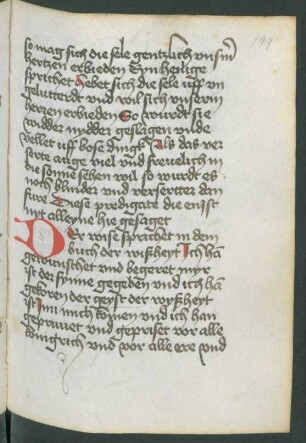 199
so mag sich die sele gentzlich vnsm̄
hertzen erbieden Eyn heilige
sprichet Hebet sich die sele uff vn
gelutterdt vnd wil sich vnserm
herren erbieden So wurdt sie
widder nydder geslagen vnde
vellet uff bose dinge Als das ver
serte auge viel vnd freuelich in
die sonne sehen wil so wurdt es
noch blinder vnd versertter dan
fure Diese predigate die enist
nyt alleyne hie gesaget
Der wise sprichet in dem
buch der wißheyt Ich hā
gewunschet vnd begeret myr
ist der synne gegeben vnd ich hā
geboren der geyst der wyßheyt
ist jnn mich komen vnd ich han
gepruuet vnd gepriset vor alle
konigrich vnd vor alle ere vnd